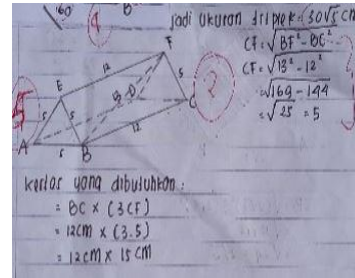 160
jadi ukuran tripleks (30√5 cm
CF = √BF² - BC²
CF = √13² - 12²
= √169 - 144
= √25 = 5
F
12
5
E
D
C
5
5
12
A
5
B
2
kertas yang dibutuhkan :
= BC × (3CF)
= 12cm × (3.5)
= 12cm × 15cm